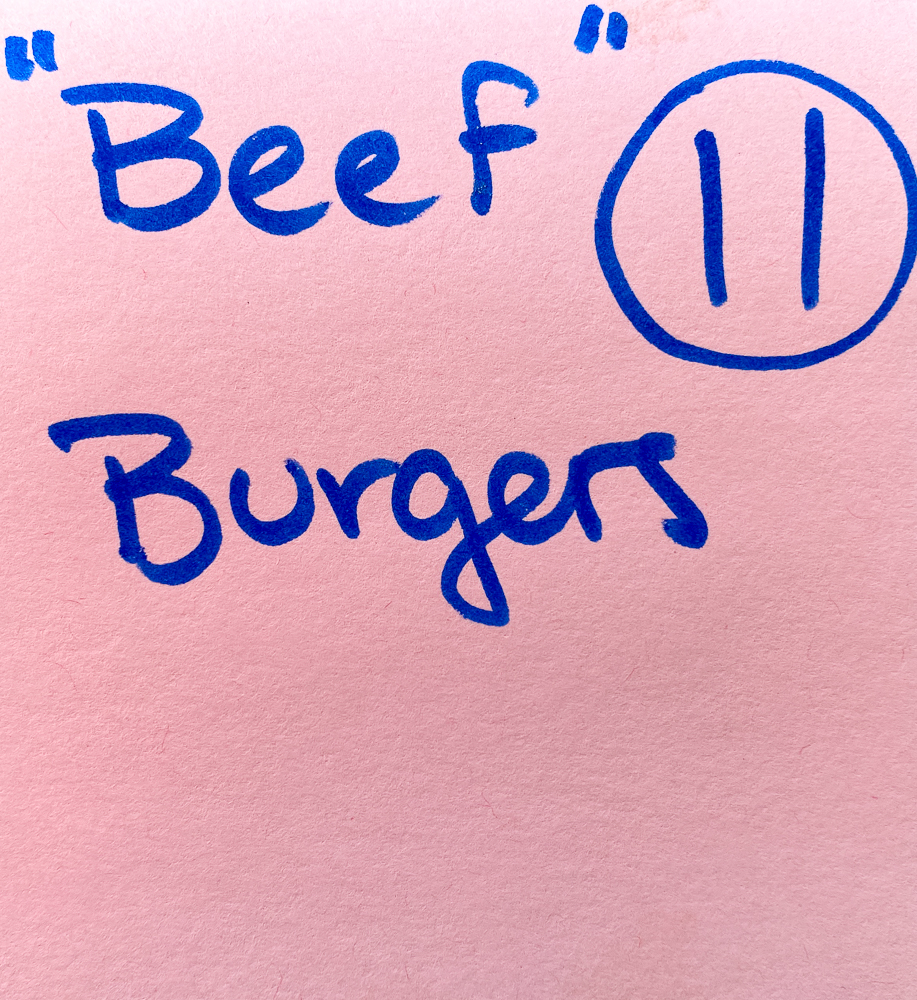 "Beef" 11
Burgers